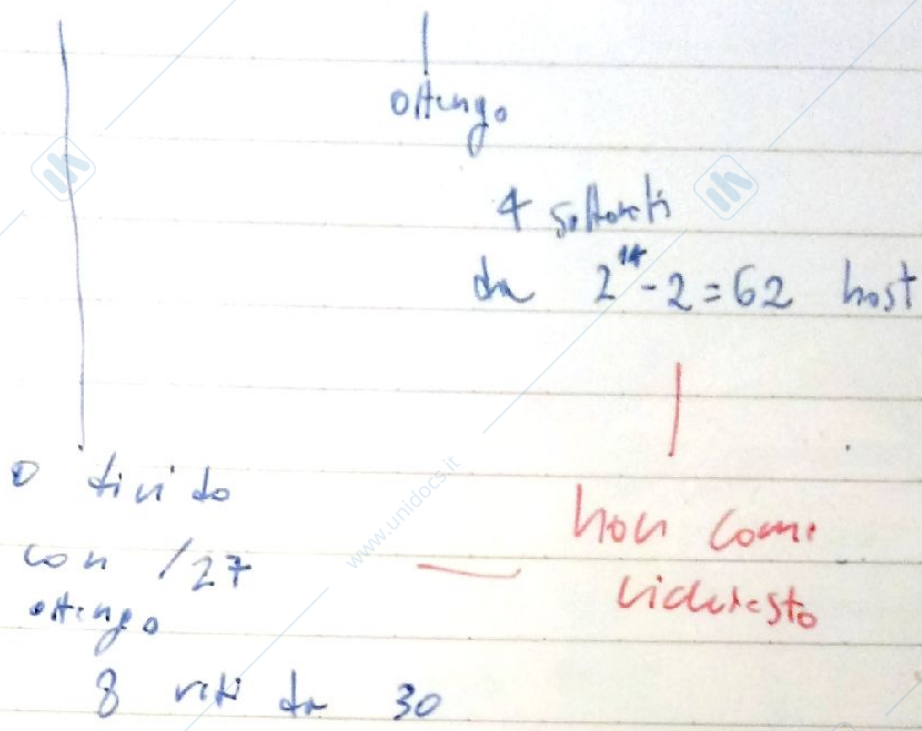 ottengo
4 sottoreti
da 2^14-2=62 host
o divido
con /27
ottengo
8 reti da 30
non come
richiesto
www.unidocs.it